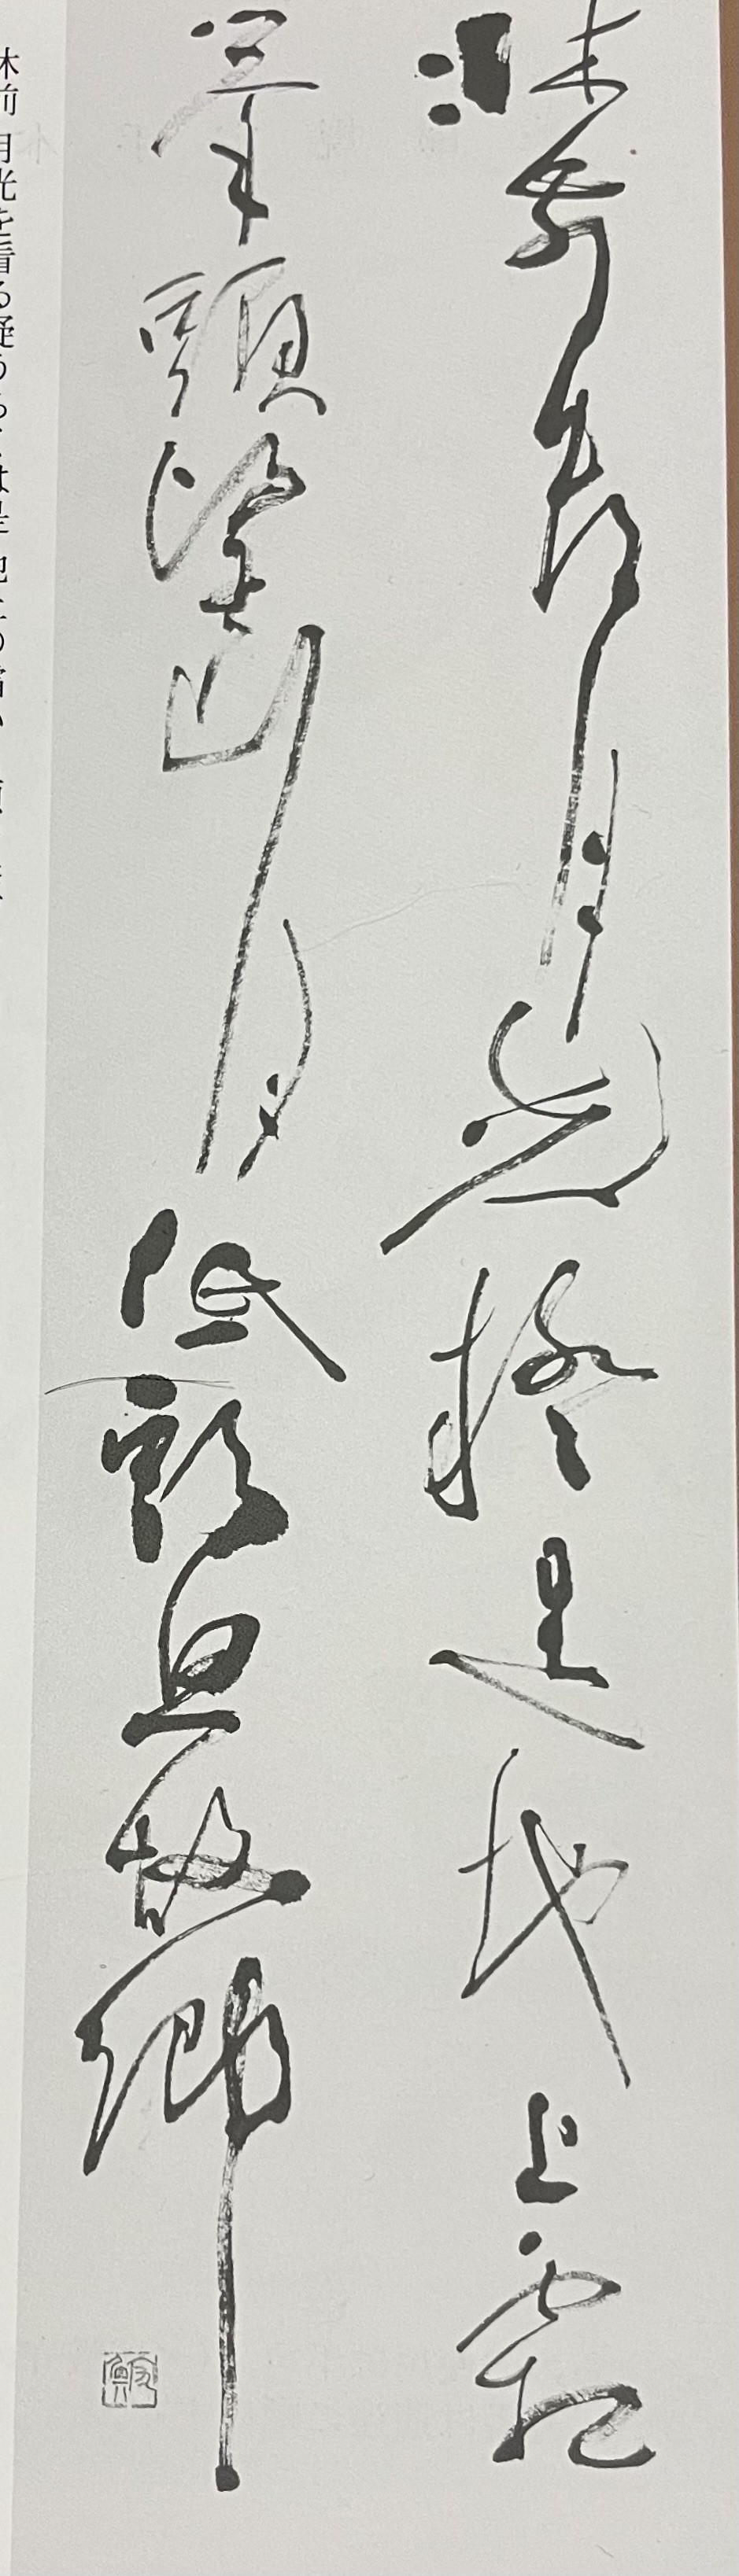 牀前看月光疑是地上霜
挙頭望山月低頭思故郷
牀前 月光を看る疑うらくは是 地上の霜か